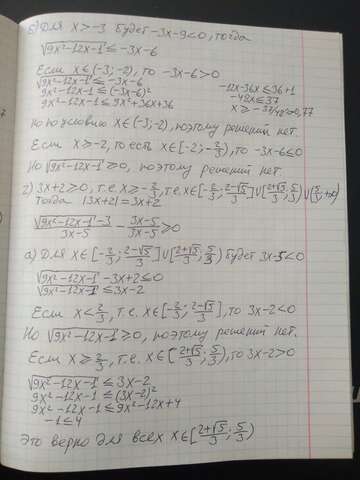 б) Для x > -3 будет -3x-9<0, тогда
√(9x²-12x-1) ≤ -3x-6
Если x∈(-3;-2), то -3x-6>0
√(9x²-12x-1) ≤ -3x-6
9x²-12x-1 ≤ (-3x-6)²
9x²-12x-1 ≤ 9x²+36x+36
-12x-36x ≤ 36+1
-48x ≤ 37
x ≥ -37/48 ≈ -0,77
Но по условию x∈(-3;-2), поэтому решений нет.
Если x ≥ -2, то есть x∈[-2;-2/3), то -3x-6≤0
Но √(9x²-12x-1) ≥ 0, поэтому решений нет.
2) 3x+2≥0, т.е. x ≥ -2/3, т.е. x∈[-2/3; (2-√5)/3]∪[(2+√5)/3; 5/3)∪(5/3; +∞)
Тогда |3x+2| = 3x+2
(√(9x²-12x-1)-3)/(3x-5) - (3x-5)/(3x-5) ≥ 0
а) Для x∈[-2/3; (2-√5)/3]∪[(2+√5)/3; 5/3) будет 3x-5<0
√(9x²-12x-1) -3x+2 ≤ 0
√(9x²-12x-1) ≤ 3x-2
Если x < 2/3, т.е. x∈[-2/3; (2-√5)/3], то 3x-2<0
Но √(9x²-12x-1) ≥ 0, поэтому решений нет.
Если x ≥ 2/3, т.е. x∈[(2+√5)/3; 5/3), то 3x-2>0
√(9x²-12x-1) ≤ 3x-2
9x²-12x-1 ≤ (3x-2)²
9x²-12x-1 ≤ 9x²-12x+4
-1 ≤ 4
Это верно для всех x∈[(2+√5)/3; 5/3)